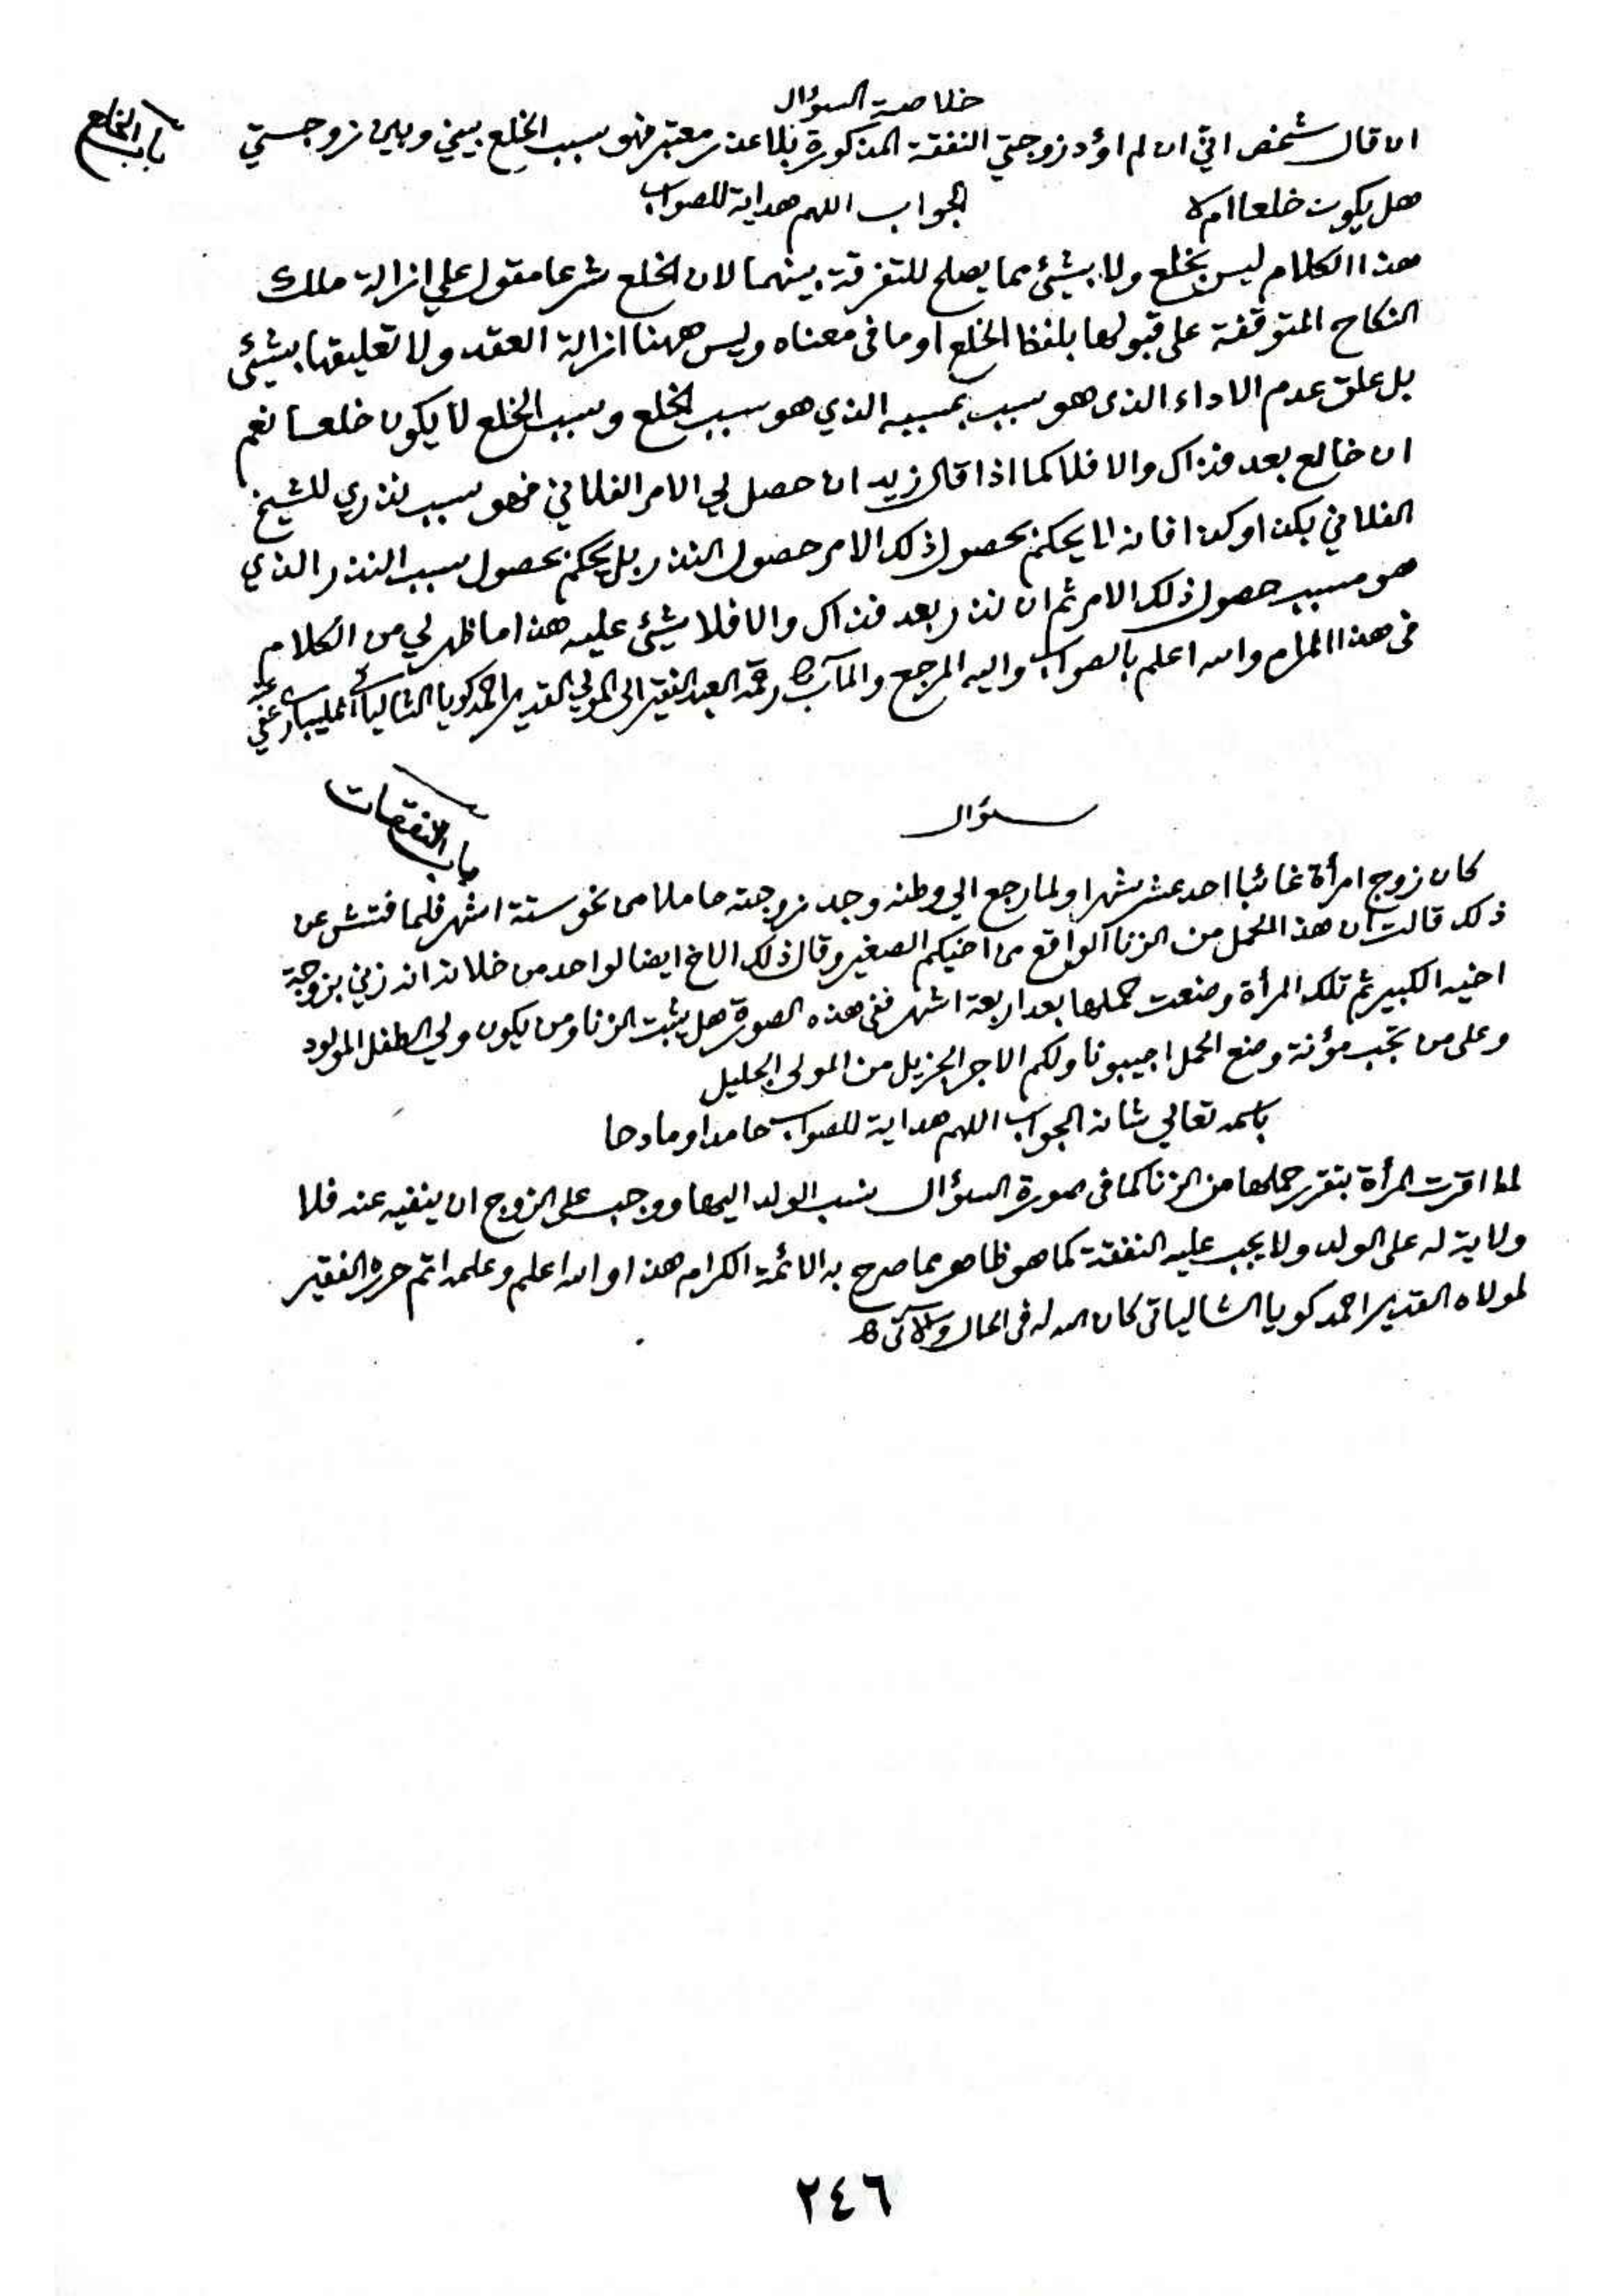 باب الخلع
خلاصة السؤال
ان قال شخص اني ان لم اؤد زوجتي النفقة المذكورة بلا عذر معتبر فهو سبب الخلع بيني وبين زوجتي
هل يكون خلعا ام لا
الجواب اللهم هداية للصواب
هذا الكلام ليس بخلع ولا بشئ مما يصلح للتفرقة بينهما لان الخلع شرعا مقول علي ازالة ملك
النكاح المتوقفة على قبولها بلفظ الخلع او ما فى معناه وليس ههنا ازالة العقد ولا تعليقها بشئ
بل علق عدم الاداء الذى هو سبب بمسببه الذي هو سبب الخلع وسبب الخلع لا يكون خلعا نعم
ان خالع بعد فذاك والا فلا كما اذا قال زيد ان حصل لي الامر الفلاني فهو سبب نذري للشيخ
الفلاني بكذا وكذا فانه لا يحكم بحصول ذلك الامر حصول النذر بل يحكم بحصول سبب النذر الذي
هو مسبب حصول ذلك الامر ثم ان نذر بعد فذاك والا فلا شئ عليه هذا ما ظهر لي من الكلام
فى هذا المرام والله اعلم بالصواب واليه المرجع والمآب رقمه العبد الفقير الى المولي القدير احمد كويا الشالياتي المليباري عفي عنه
باب النفقات
سؤال
كان زوج امرأة غائبا احد عشر شهرا ولما رجع الي وطنه وجد زوجته حاملا من نحو ستة اشهر فلما فتش عن
ذلك قالت ان هذا الحمل من الزنا الواقع من اخيكم الصغير وقال ذلك الاخ ايضا لواحد من خلانه انه زني بزوجة
اخيه الكبير ثم تلك المرأة وضعت حملها بعد اربعة اشهر ففى هذه الصورة هل يثبت الزنا ومن يكون ولي الطفل المولود
وعلى من تجب مؤنة وضع الحمل اجيبونا ولكم الاجر الجزيل من المولى الجليل
باسمه تعالي شانه الجواب اللهم هداية للصواب حامدا ومادحا
لما اقرت المرأة بتقرر حملها من الزنا كما فى صورة السؤال ينسب الولد اليها ووجب على الزوج ان ينفيه عنه فلا
ولاية له على الولد ولا يجب عليه النفقة كما هو ظاهر مما صرح به الائمة الكرام هذا والله اعلم وعلمه اتم حرره الفقير
لمولاه القدير احمد كويا الشالياتى كان الله له فى الحال والآتى
٢٤٦